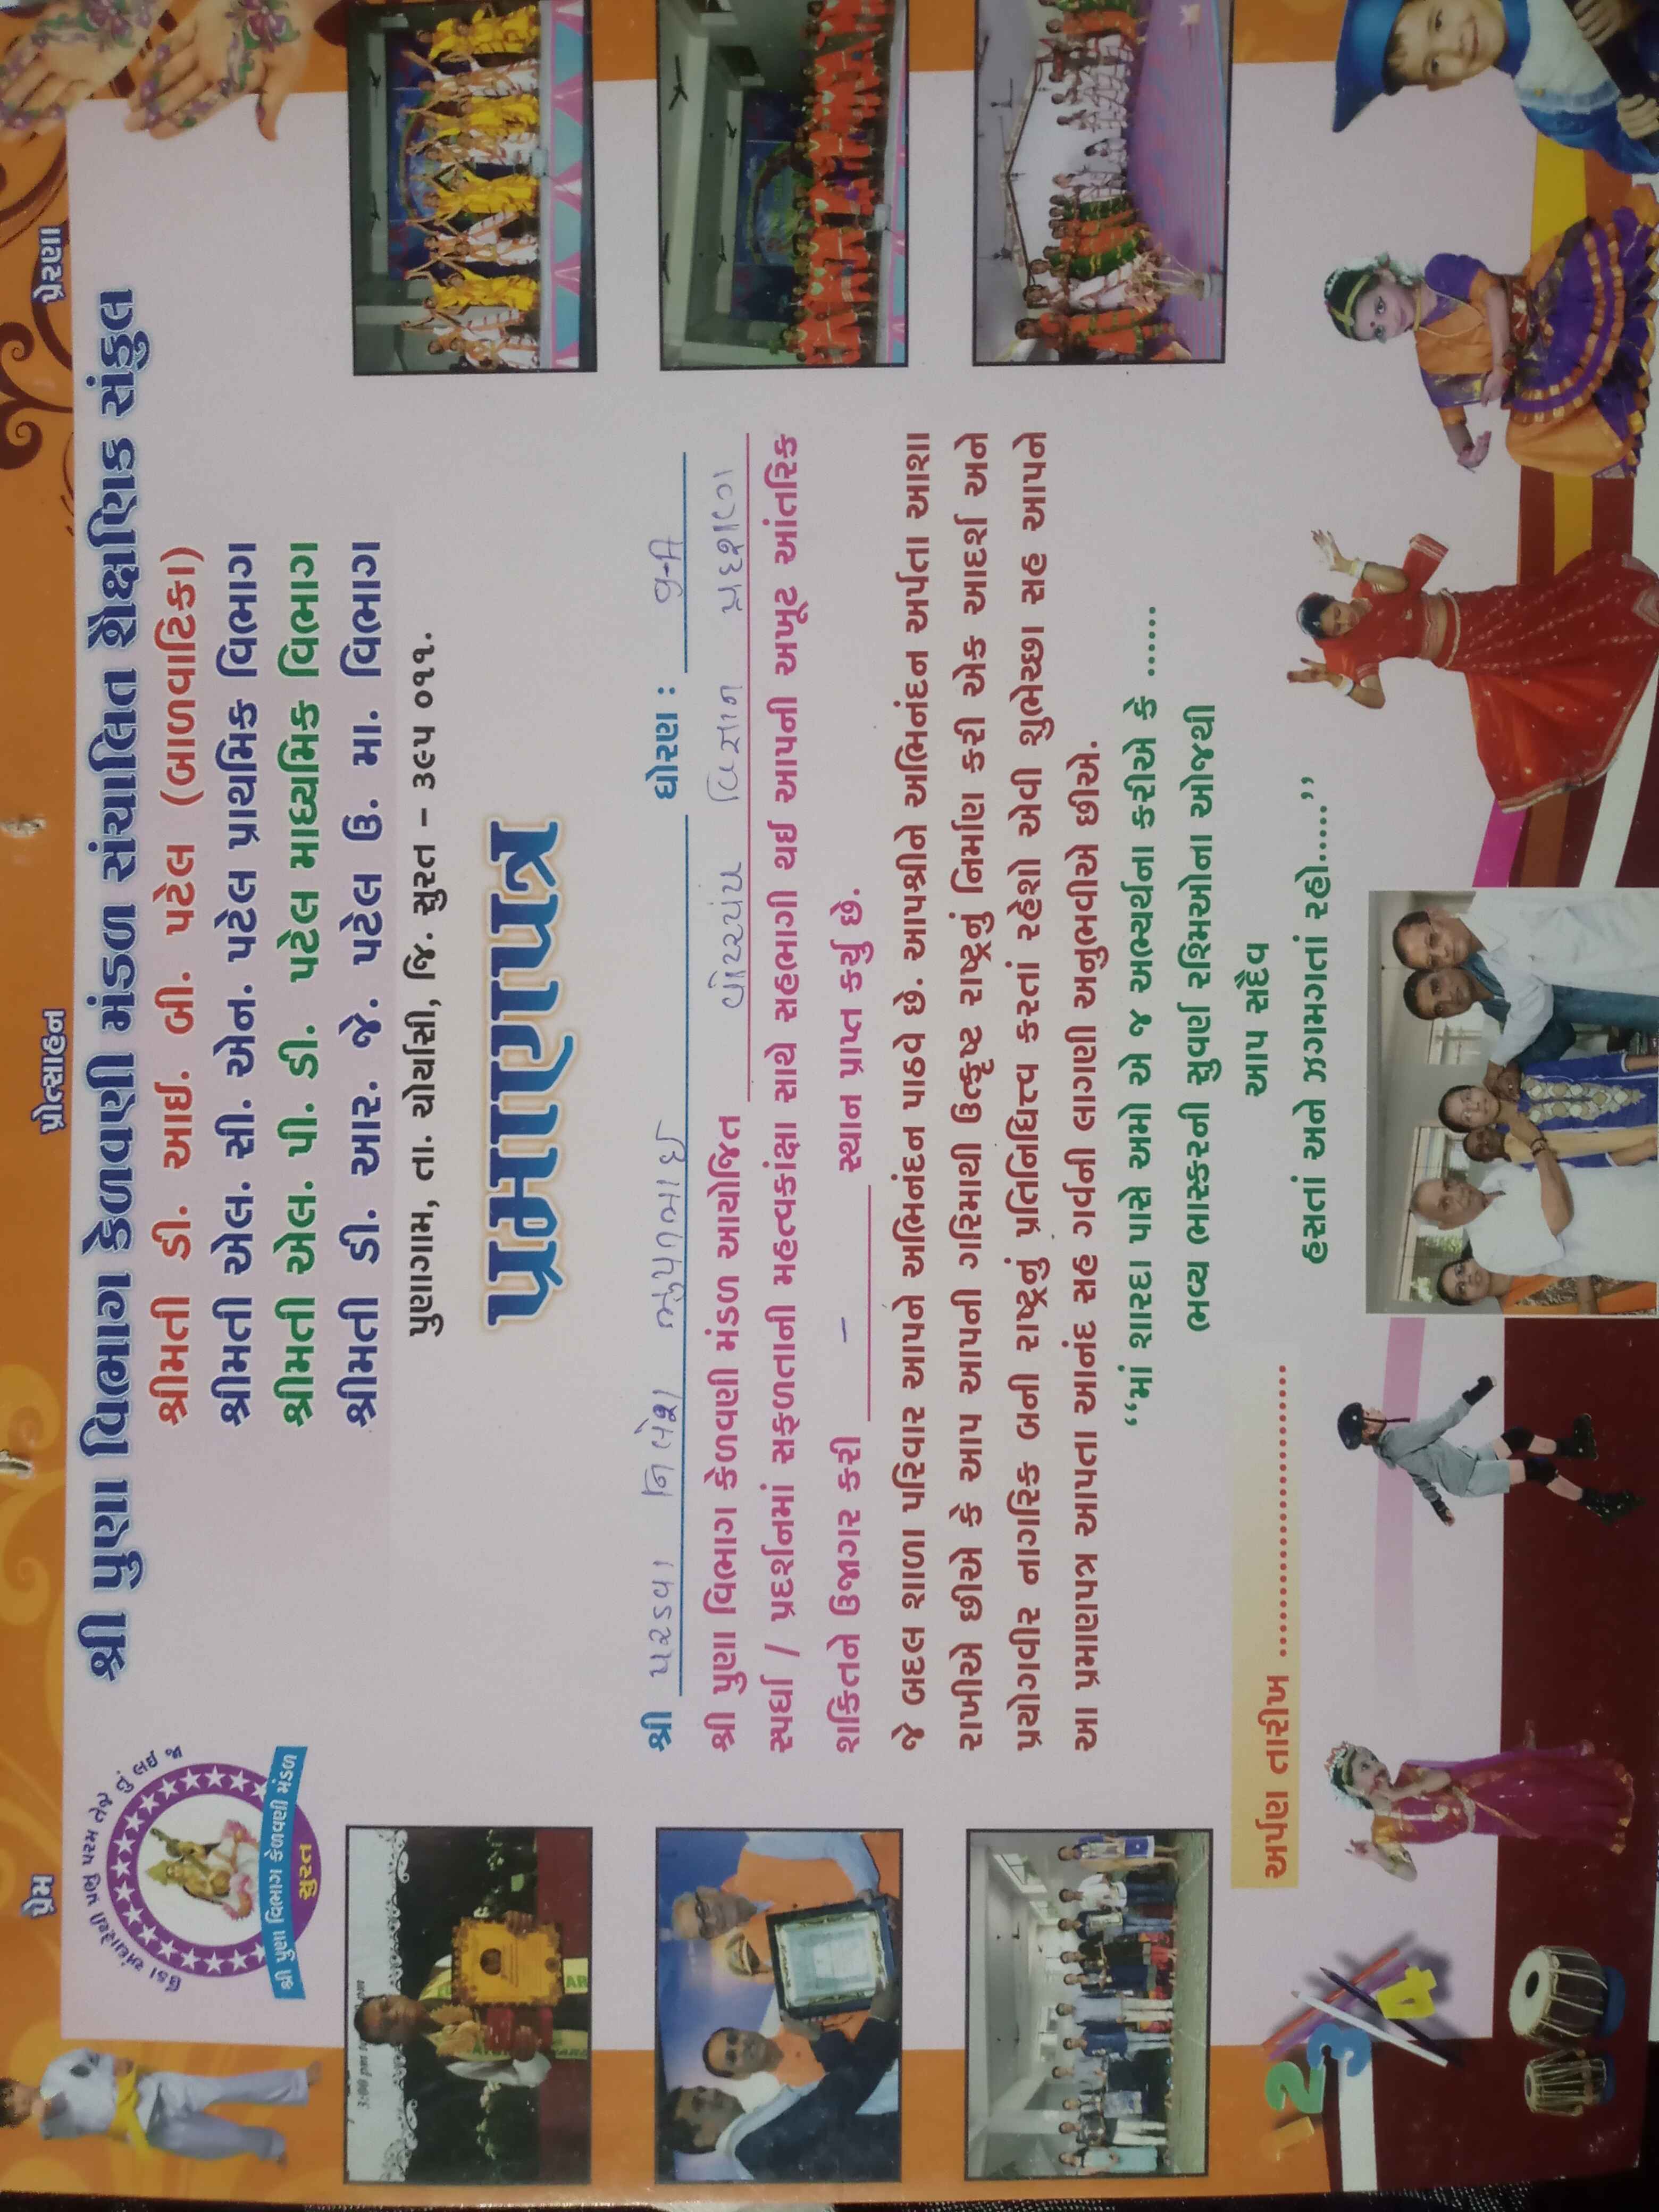 પ્રેમ પ્રોત્સાહન પ્રેરણા
ઉંડા અંધારેથી પ્રભુ પરમ તેજે તું લઇ જા
શ્રી પુણા વિભાગ કેળવણી મંડળ
સુરત
શ્રી પુણા વિભાગ કેળવણી મંડળ સંચાલિત શૈક્ષણિક સંકુલ
શ્રીમતી ડી. આઈ. બી. પટેલ (બાળવાટિકા)
શ્રીમતી એલ. સી. એન. પટેલ પ્રાથમિક વિભાગ
શ્રીમતી એલ. પી. ડી. પટેલ માધ્યમિક વિભાગ
શ્રીમતી ડી. આર. જે. પટેલ ઉ. મા. વિભાગ
પુણાગામ, તા. ચોર્યાસી, જિ. સુરત - ૩૯૫ ૦૧૧.
3:00 pm
પ્રમાણપત્ર
શ્રી પરડવા નિલેશ ભુપતભાઇ ધોરણ : 9-A
શ્રી પુણા વિભાગ કેળવણી મંડળ આયોજિત વિજ્ઞાન
સ્પર્ધા / પ્રદર્શનમાં સફળતાની મહત્વકાંક્ષા સાથે સહભાગી થઈ આપની અખૂટ આંતરિક
શકિતને ઉજાગર કરી - સ્થાન પ્રાપ્ત કર્યુ છે.
જે બદલ શાળા પરિવાર આપને અભિનંદન પાઠવે છે. આપશ્રીને અભિનંદન અર્પતા આશા
રાખીએ છીએ કે આપ આપની ગરિમાથી ઉત્કૃષ્ટ રાષ્ટ્રનું નિર્માણ કરી એક આદર્શ અને
પ્રયોગવીર નાગરિક બની રાષ્ટ્રનું પ્રતિનિધિત્ત્વ કરતાં રહેશો એવી શુભેચ્છા સહ આપને
આ પ્રમાણપત્ર આપતા આનંદ સહ ગર્વની લાગણી અનુભવીએ છીએ.
‘‘માં શારદા પાસે અમો એ જ અભ્યર્થના કરીએ કે ......
ભવ્ય ભાસ્કરની સુવર્ણ રશ્મિઓના ઓજથી
આપ સદૈવ
હસતાં અને ઝગમગતાં રહો.....’’
અર્પણ તારીખ ........................
1 2 3 4